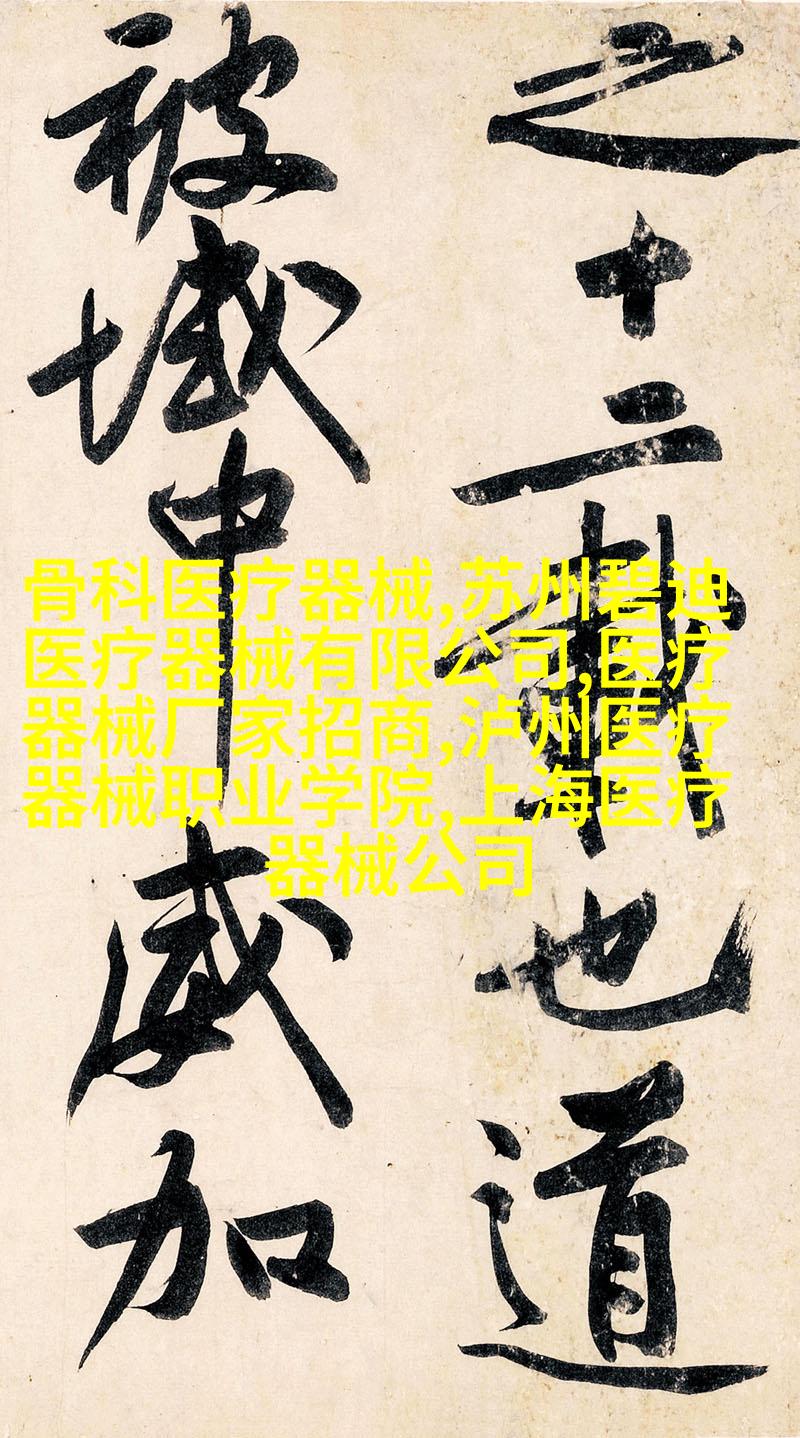 之十二載也道
被域中威加
骨科医疗器械,苏州碧迪
医疗器械有限公司,医疗
器械厂家招商,泸州医疗
器械职业学院,上海医疗
器械公司